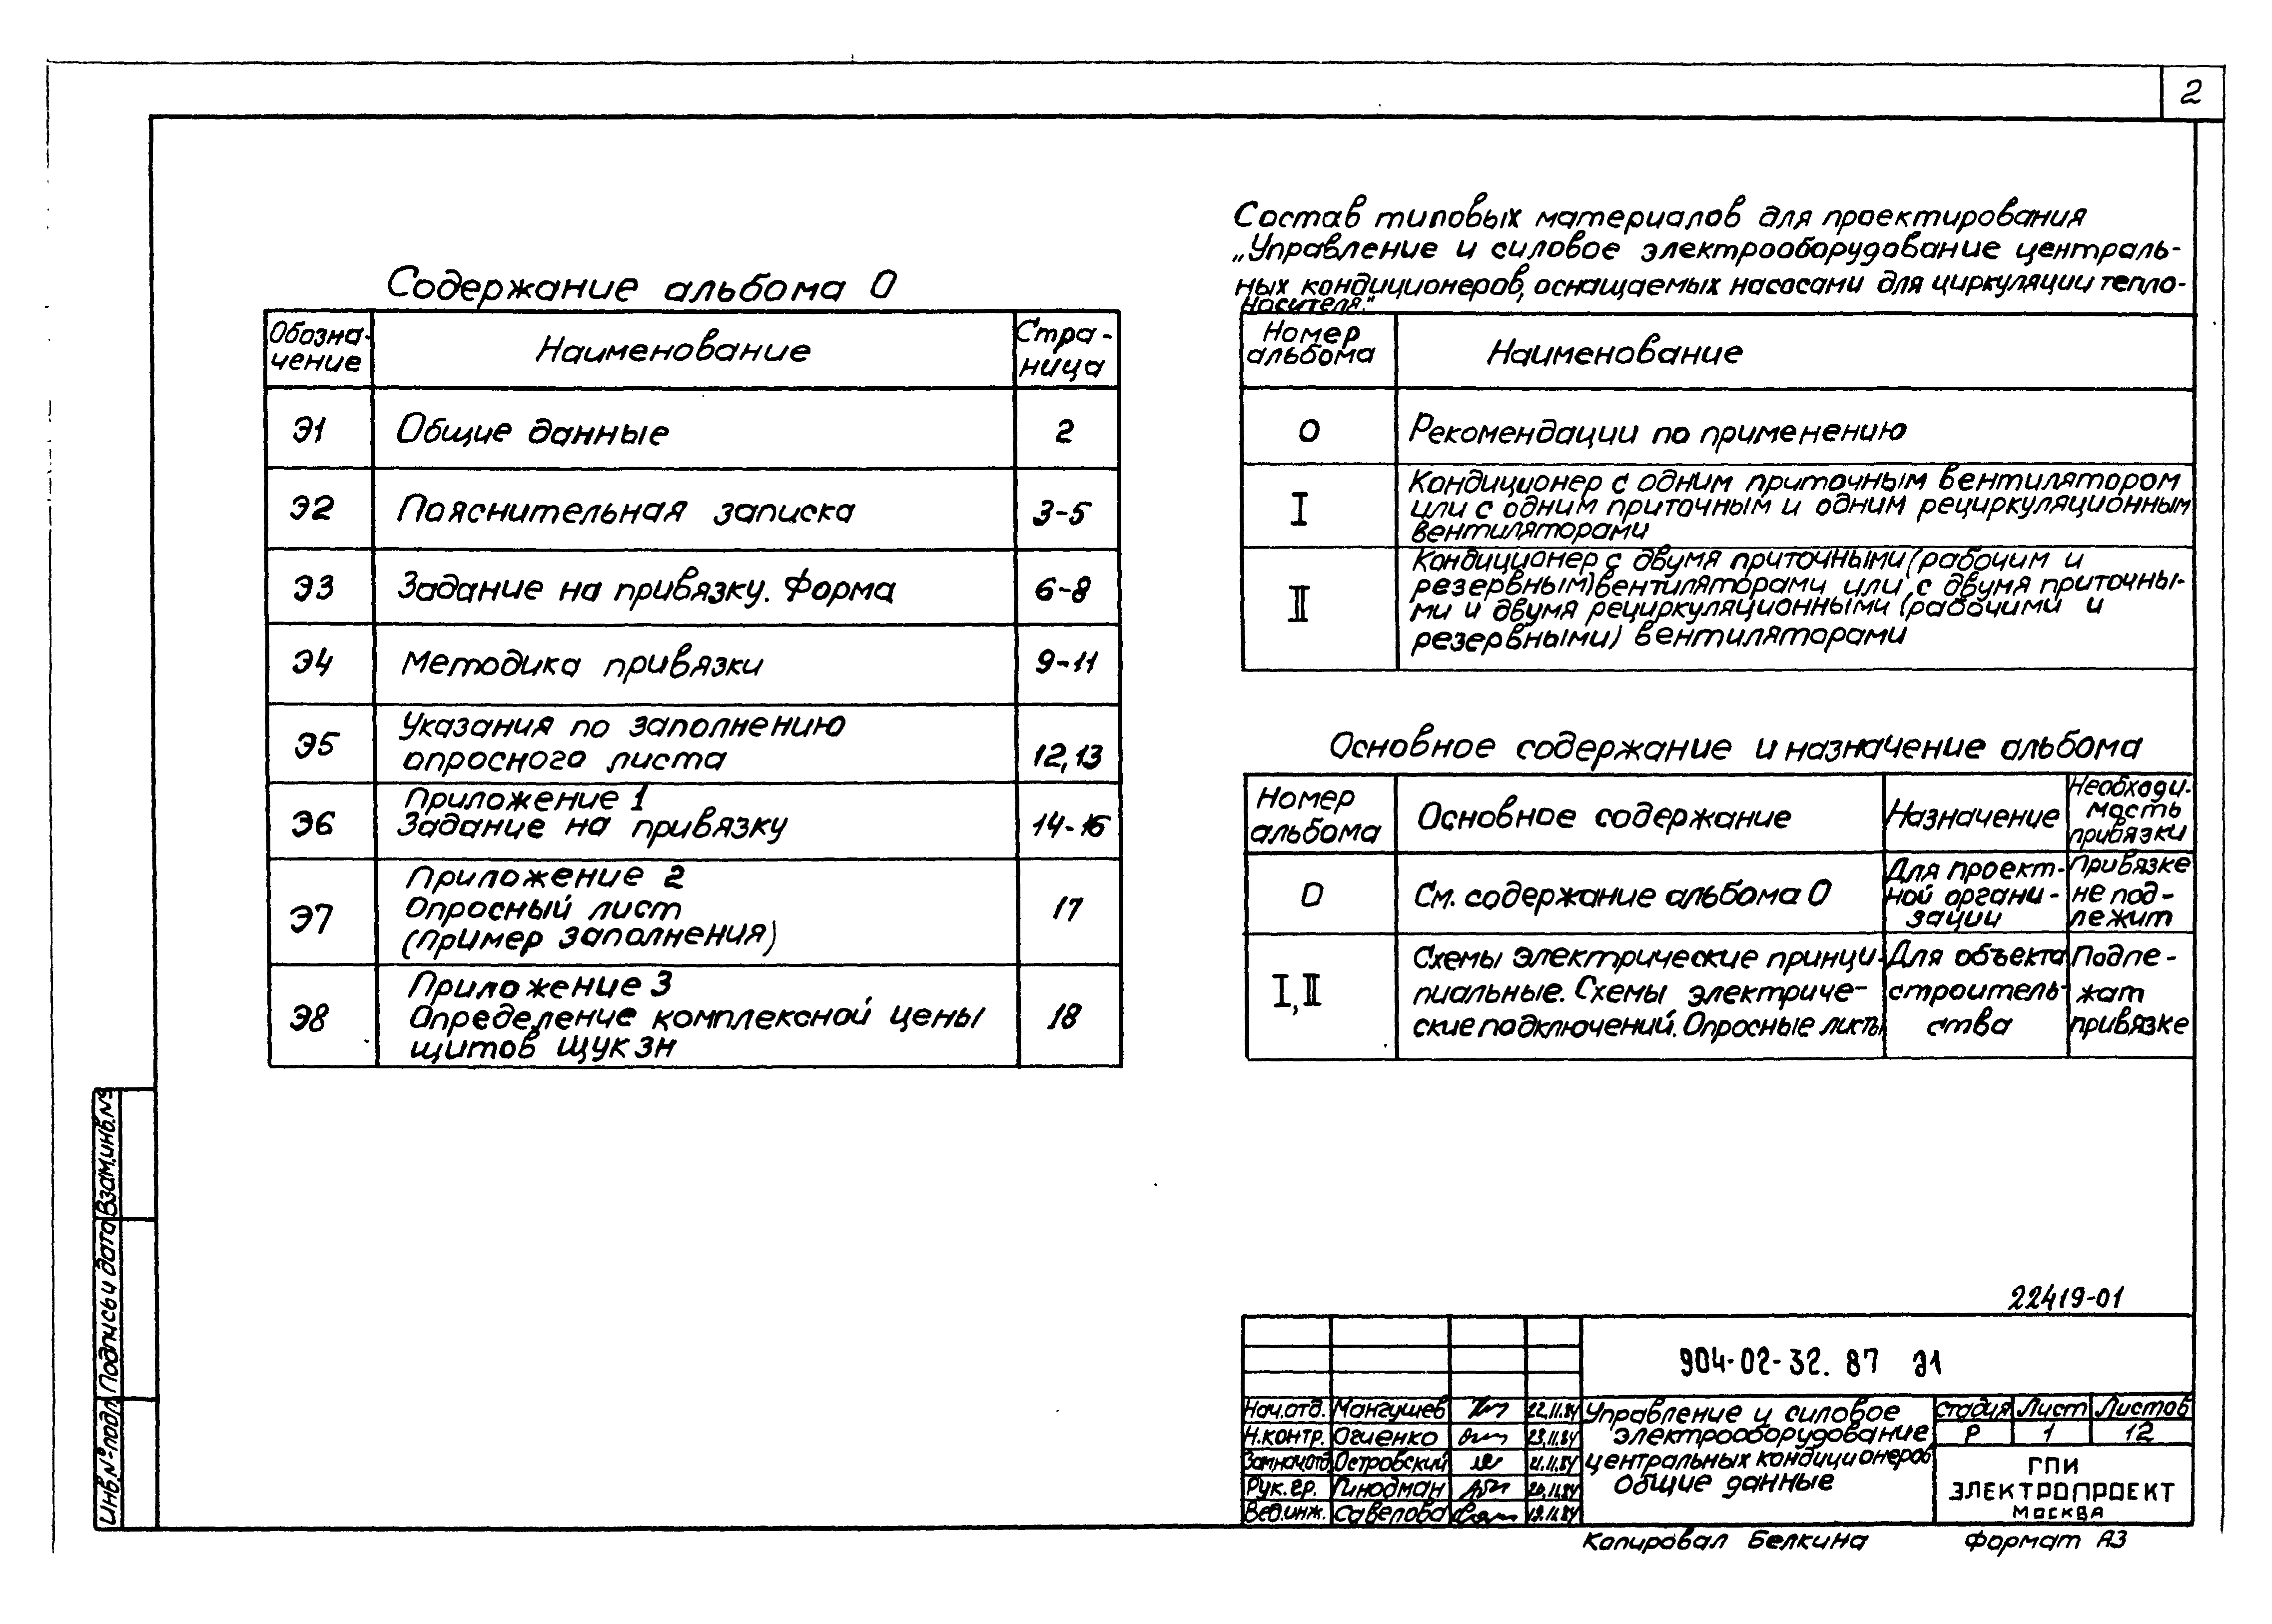 2
Содержание альбома 0
Обозна-
чение
Наименование
Стра-
ница
Э1
Общие данные
2
Э2
Пояснительная записка
3-5
Э3
Задание на привязку. Форма
6-8
Э4
Методика привязки
9-11
Э5
Указания по заполнению
опросного листа
12,13
Э6
Приложение 1
Задание на привязку
14-16
Э7
Приложение 2
Опросный лист
(Пример заполнения)
17
Э8
Приложение 3
Определение комплексной цены
щитов ЩУК3Н
18
Состав типовых материалов для проектирования
„Управление и силовое электрооборудование централь-
ных кондиционеров, оснащаемых насосами для циркуляции тепло-
носителя."
Номер
альбома
Наименование
0
Рекомендации по применению
I
Кондиционер с одним приточным вентилятором
или с одним приточным и одним рециркуляционным
вентиляторами
II
Кондиционер с двумя приточными (рабочим и
резервным) вентиляторами или с двумя приточны-
ми и двумя рециркуляционными (рабочими и
резервными) вентиляторами
Основное содержание и назначение альбома
Номер
альбома
Основное содержание
Назначение
Необходи-
мость
привязки
0
См. содержание альбома 0
Для проект-
ной органи-
зации
Привязке
не под-
лежит
I, II
Схемы электрические принци-
пиальные. Схемы электриче-
ские подключений. Опросные листы
Для объекта
строитель-
ства
Подле-
жат
привязке
22419-01
904-02-32.87 Э1
Нач.отд. Мангушев 22.11.84
Н.контр. Огиенко 23.11.84
Зам.нач.отд. Островский 21.11.84
Рук.гр. Гинодман 20.11.84
Вед.инж. Савелова 19.11.84
Управление и силовое
электрооборудование
центральных кондиционеров
Общие данные
Стадия Лист Листов
Р 1 12
ГПИ
ЭЛЕКТРОПРОЕКТ
МОСКВА
Копировал Белкина
Формат А3
Взам.инв.№
Подпись и дата
Инв.№ подл.